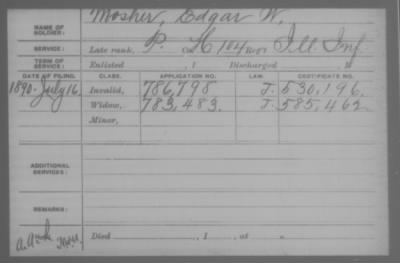 NAME OF SOLDIER: Mosher, Edgar W.
SERVICE: Late rank, P. Co. H 104 Reg't Ill. Inf.
TERM OF SERVICE: Enlisted , 1 Discharged , 1
DATE OF FILING. CLASS. APPLICATION NO. LAW. CERTIFICATE NO.
1890-July 16. Invalid, 786,798 J. 530,196.
Widow, 783,483. J. 585,462
Minor,
ADDITIONAL SERVICES:
REMARKS:
Died , 1 , at